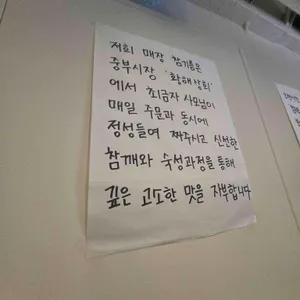 저희 매장 참기름은
중부시장 '황해상회'
에서 최금자 사모님이
매일 주문과 동시에
정성들여 짜주시고 신선한
참깨와 숙성과정을 통해
깊은 고소한 맛을 자부합니다